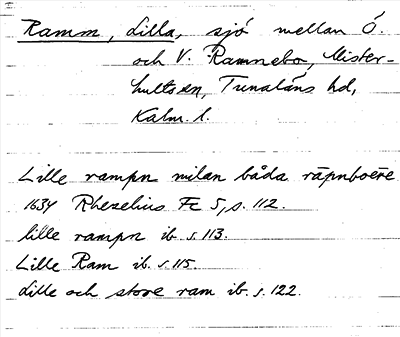 Ramm, Lilla, sjö mellan Ö.
och V. Ramnebo, Mister-
hults sn, Tunaläns hd,
Kalm. l.
Lille rampn milan båda råpnboëre
1634 Rhezelius Fc 5, s. 112.
lille rampn ib. s. 113.
Lille Ram ib. s. 115.
Lille och store ram ib. s. 122.